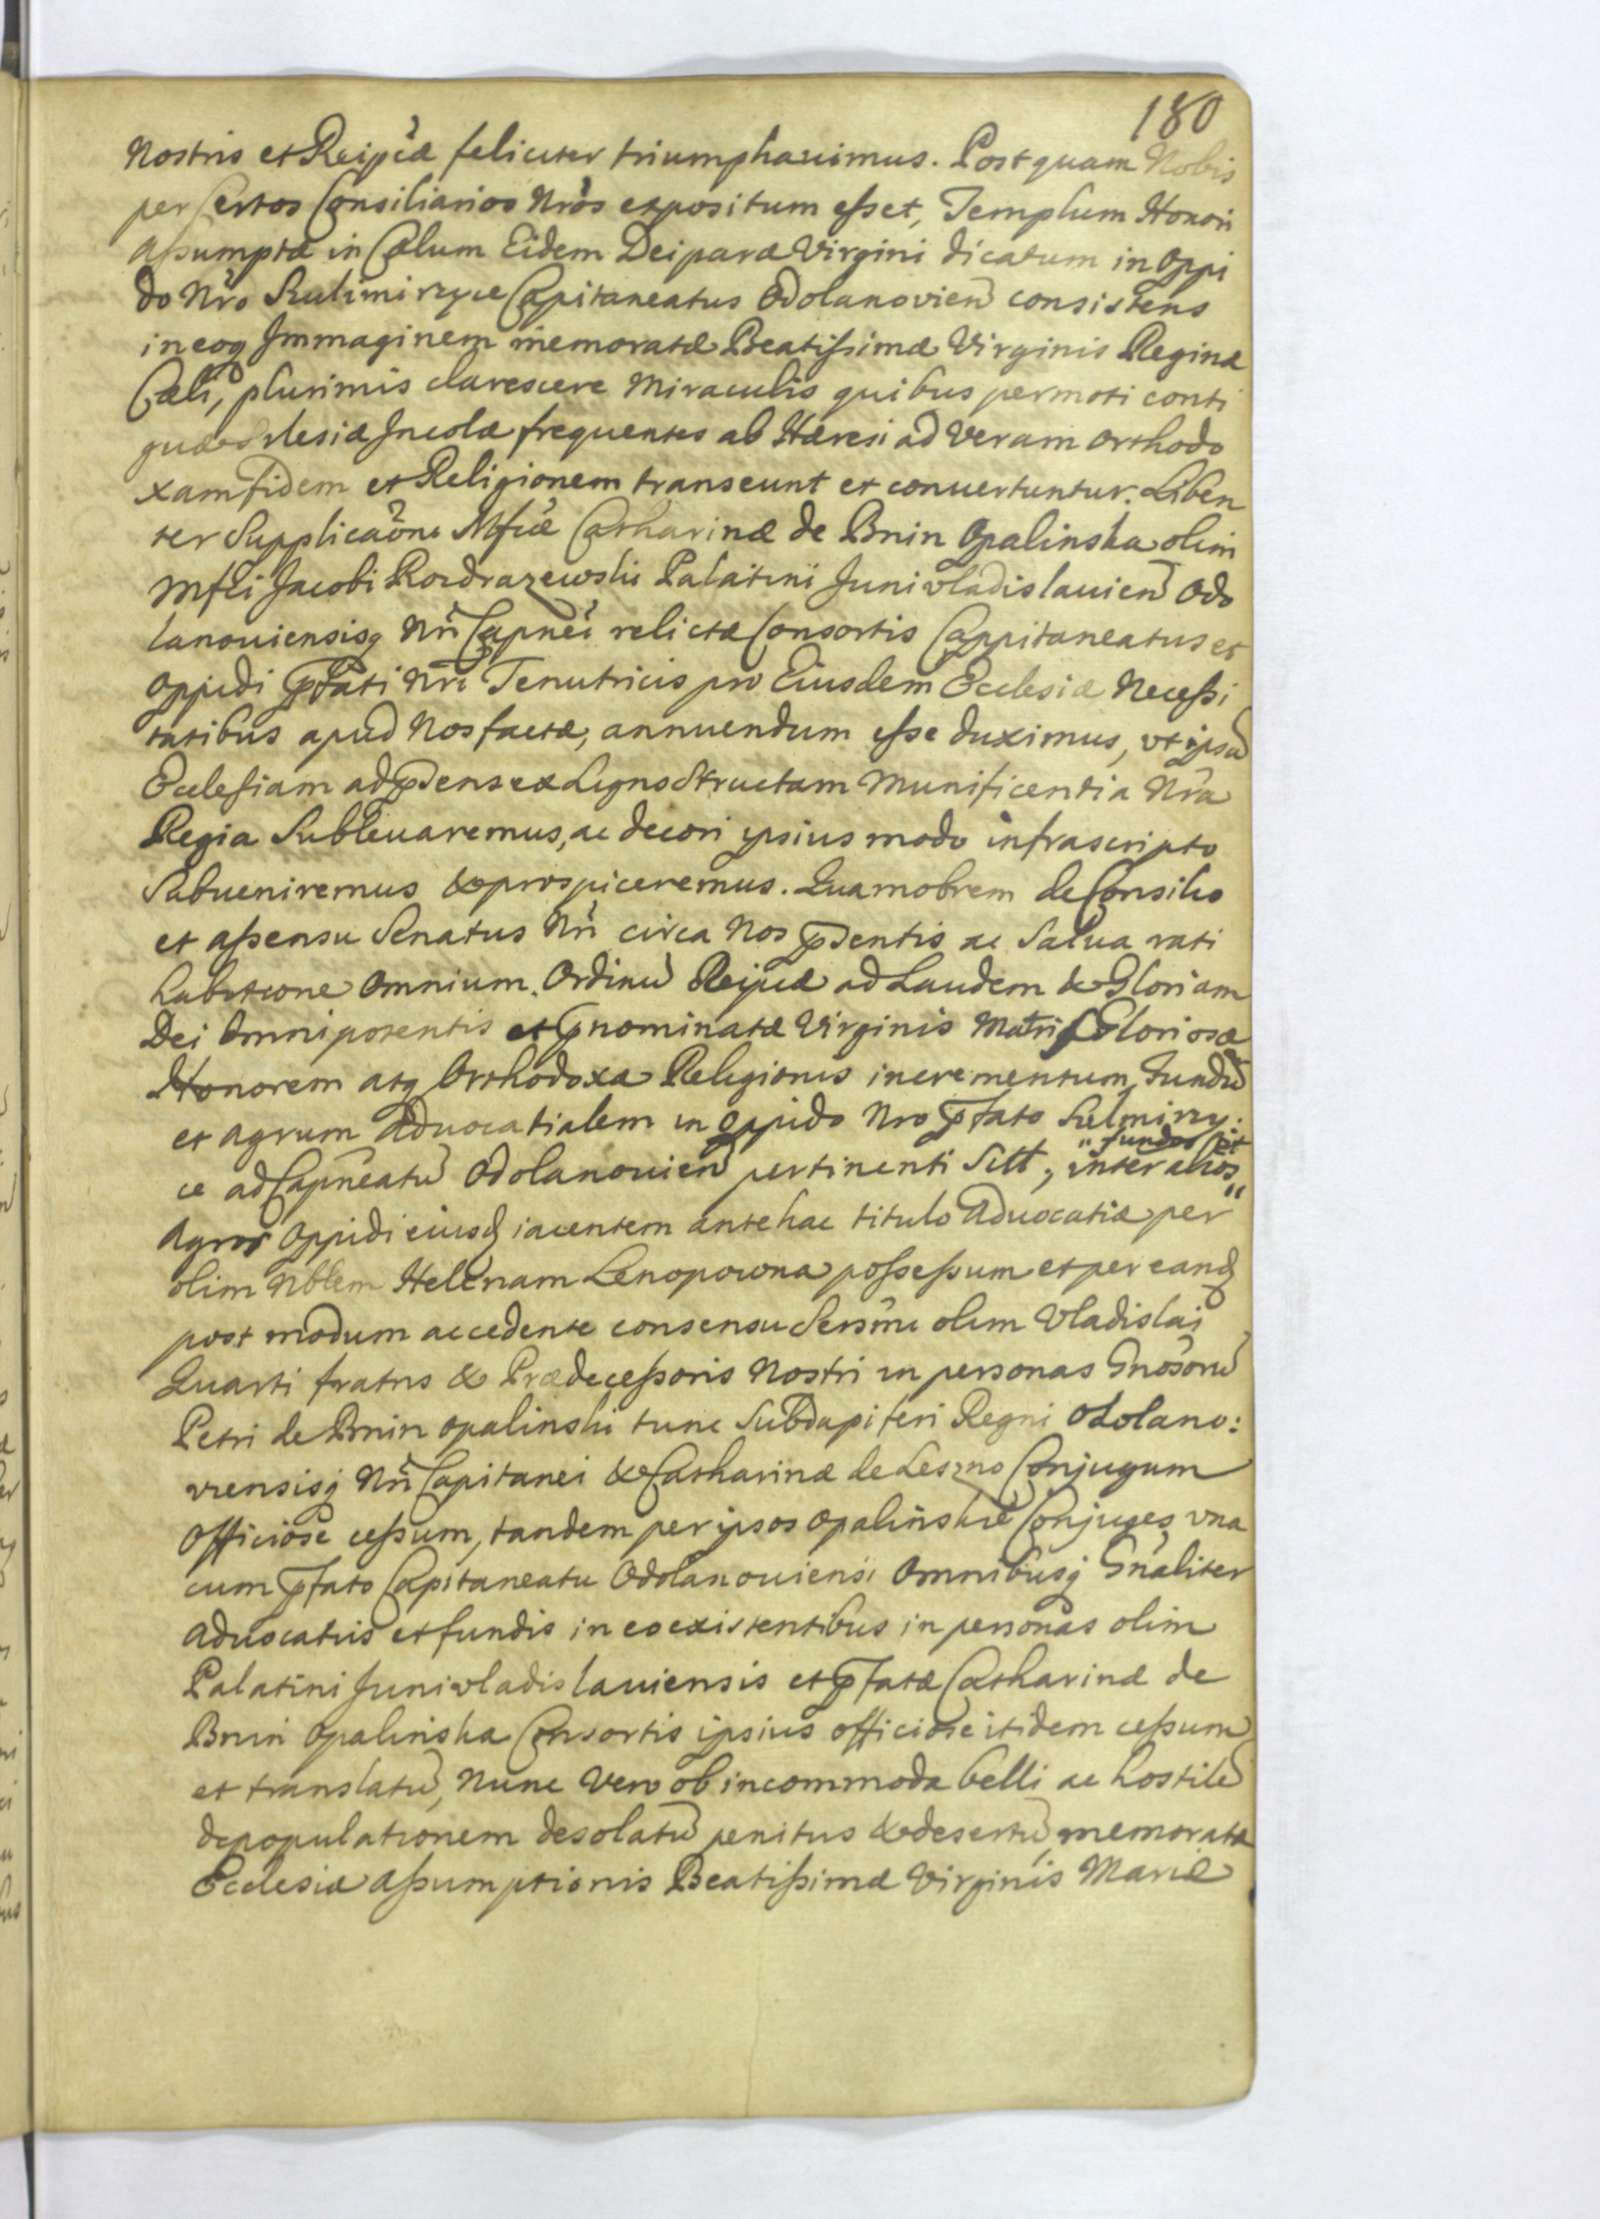 180
Nostris et Reipcæ feliciter triumphauimus. Postquam Nobis
per Certos Consiliarios Nros expositum esset, Templum Honori
Assumptæ in Cælum Eidem Deiparæ Virgini dicatum in Oppi
do Nro Sulimirzyce Capitaneatus Odolanovien consistens
in eoq Immaginem memoratæ Beatissimæ Virginis Reginæ
Cæli, plurimis clarescere Miraculis quibus permoti conti
guæ Silesiæ Incolæ frequentes ab Hæresi ad Veram Orthodo
xam fidem et Religionem transeunt et conuertuntur. Liben
ter Supplicaõni Mfcæ Catharinæ de Bnin Opalinska olim
Mfci Jacobi Rozdrazewski Palatini Junivladislauien Odo
lanouiensisq Nri Capnei relictæ Consortis Cappitaneatus et
Oppidi pfati Nri Tenutricis pro Eiusdem Ecclesiæ Necessi
tatibus apud Nos factæ, annuendum esse duximus, vt ipsã
Ecclesiam ad pdens ex Ligno Structam Munificentia Nra
Regia Subleuaremus, ac decori ipsius modo infrascripto
Subueniremus & prospiceremus. Quamobrem de Consilio
et assensu Senatus Nri circa Nos pdentis ac Salua rati
habitione Omnium Ordinũ Reipcæ ad Laudem & Gloriam
Dei Omnipotentis et pnominatæ Virginis Matris Gloriosæ
Honorem atq Orthodoxa Religionis incrementum, Fundũ
et Agrum Aduocatialem in Oppido Nro pfato Sulmirzy:
ce ad Capneatũ Odolanouien pertinenti Situ, inter alios " fundos et "
Agros Oppidi eiusd iacentem antehac titulo Aduocatiæ per
olim Nblem Helenam Lenopowna possessum et per eand
post modum accedente consensu Sersmi olim Vladislai
Quarti fratris & Prædecessoris Nostri in personas Gnosorũ
Petri de Bnin Opalinski tunc Subdapiferi Regni Odolano:
viensisq Nri Capitanei & Catharinæ de Leszno Conjugum
Officiose cessum, tandem per ipsos Opalinskie Conjuges vna
cum pfato Capitaneatu Odolanouiensi Omnibusq Gnaliter
Aduocatiis et fundis in eo existentibus in personas olim
Palatini Junivladislauiensis et pfatæ Catharinæ de
Bnin Opalinska Consortis ipsius officiose itidem cessum
et translatũ, Nunc Vero ob incommoda belli ac hostilẽ
depopulationem desolatũ penitus & desertũ, memoratæ
Ecclesiæ Assumptionis Beatissimæ Virginis Mariæ